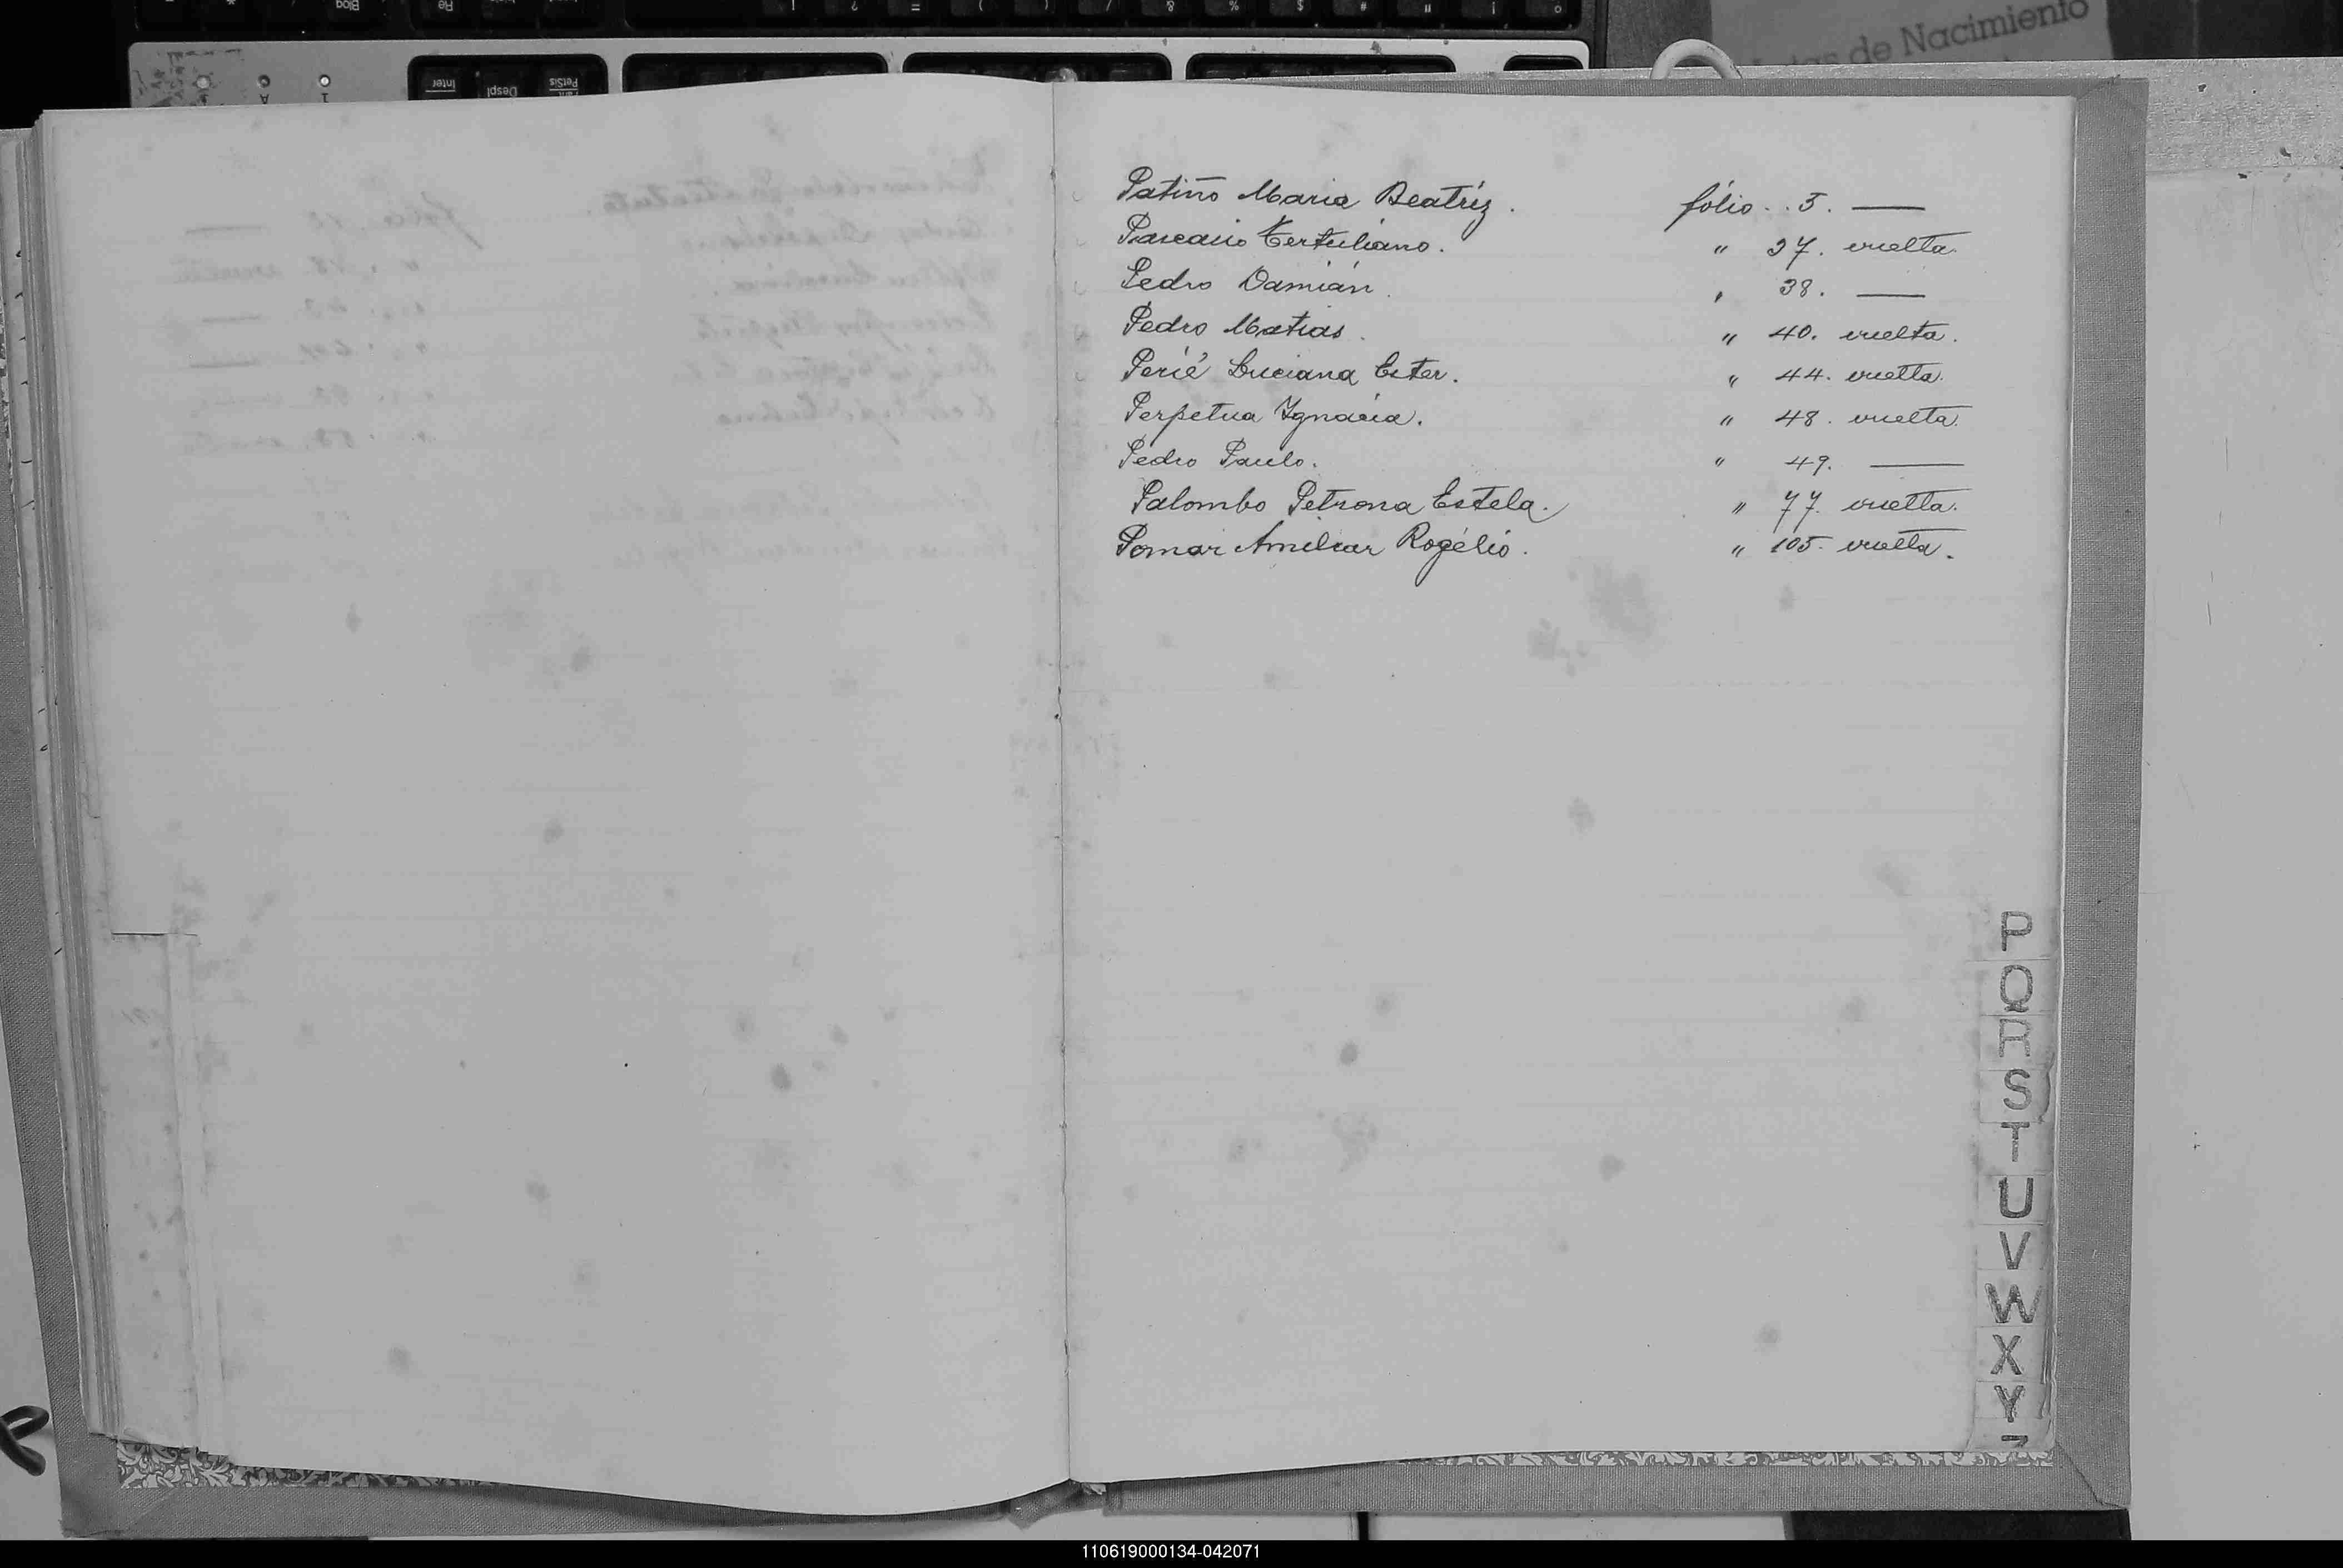 de Nacimiento
Patiño Maria Beatríz. fólio. . 5. —
Tertuliano. " 37. vuelta.
Pedro Damián. " 38. —
Pedro Matias. " 40. vuelta.
Perié Luciana Ester. " 44. vuelta.
Perpetua Ignácia. " 48. vuelta.
Pedro Paulo. " 49. —
Palombo Petrona Estela. " 77. vuelta.
Pomar Amilcar Rogélio. " 105. vuelta.
P
Q
R
S
T
U
V
W
X
Y
110619000134-042071